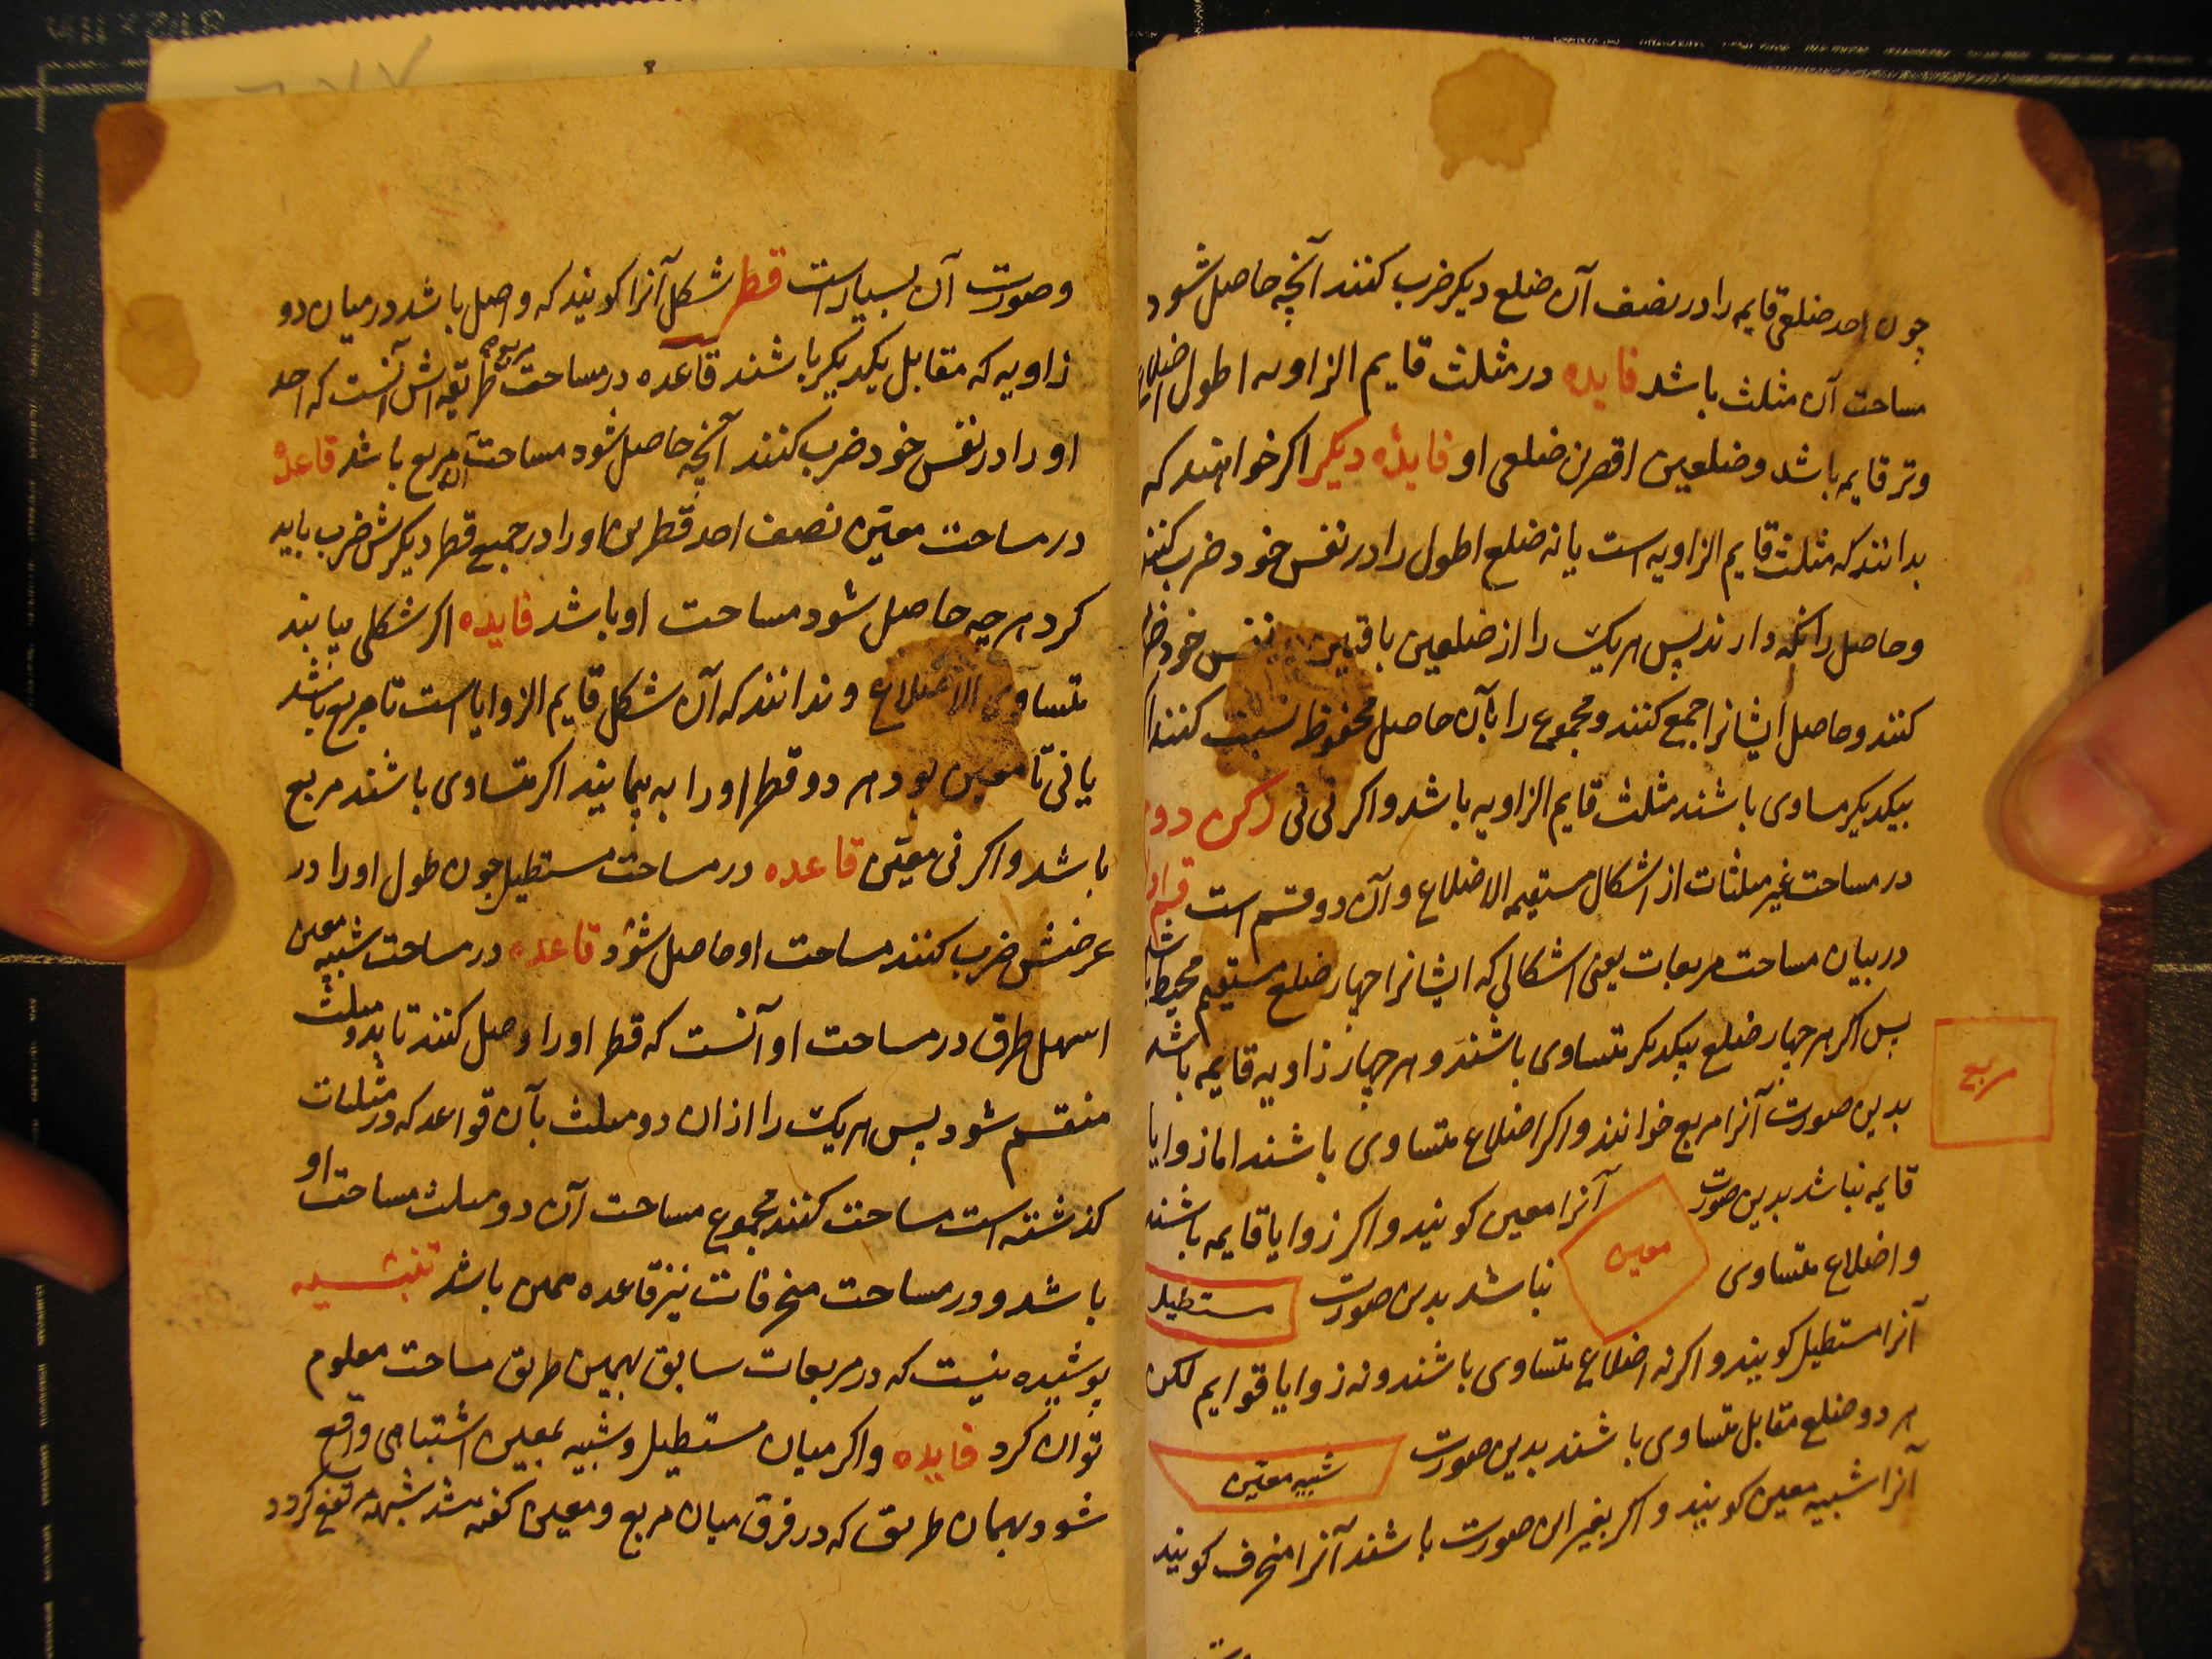 چون احد ضلعی قایمه را در نصف آن ضلع دیکر ضرب کنند آنچه حاصل شود
مساحت آن مثلث باشد فایده در مثلث قایم الزاویه اطول اضلاع
وتر قایمه باشد و ضلعین اقصرین ضلعی او فایده دیکر اکر خواهند که
بدانند که مثلث قایم الزاویه است یا نه ضلع اطول را در نفس خود ضرب کنند
و حاصل را نکه دارند پس هر یک را از ضلعین باقیین در نفس خود ضرب
کنند و حاصل ایشانرا جمع کنند و مجموع را بآن حاصل محفوظ نسبت کنند اکر
بیکدیکر مساوی باشند مثلث قایم الزاویه باشد و اکر نی نی رکن دوم
در مساحت غیر مثلثات از اشکال مستقیمه الاضلاع و آن دو قسم است قسم اول
در بیان مساحت مربعات یعنی اشکالی که ایشانرا چهار ضلع مستقیم محیط باشد
پس اکر هر چهار ضلع بیکدیکر متساوی باشند و هر چهار زاویه قایمه باشد
مربع
بدین صورت آنرا مربع خوانند و اکر اضلاع متساوی باشند اما زوایا
قایمه نباشد بدین صورت معین آنرا معین کویند و اکر زوایا قایمه باشند
و اضلاع متساوی نباشد بدین صورت مستطیل
آنرا مستطیل کویند و اکر نه اضلاع متساوی باشند و نه زوایا قوایم لکن
هر دو ضلع مقابل متساوی باشند بدین صورت شبیه معین
آنرا شبیه معین کویند و اکر بغیر این صورت باشند آنرا منحرف کویند
و صورت آن بسیار است قطر شکل آنرا کویند که واصل باشد در میان دو
زاویه که مقابل یکدیکر باشند قاعده در مساحت مربع طریقه اش آنست که احد
او را در نفس خود ضرب کنند آنچه حاصل شود مساحت آن مربع باشد قاعده
در مساحت معین نصف احد قطرین او را در جمیع قطر دیکرش ضرب باید
کرد هر چه حاصل شود مساحت او باشد فایده اکر شکلی بیابند
متساوی الاضلاع و ندانند که آن شکل قایم الزوایا است تا مربع باشد
یا نی تا معین بود هر دو قطر او را به پیمایند اکر متساوی باشند مربع
باشد و اکر نی معین قاعده در مساحت مستطیل چون طول او را در
عرضش ضرب کنند مساحت او حاصل شود قاعده در مساحت شبیه معین
اسهل طرق در مساحت او آنست که قطر او را وصل کنند تا بدو مثلث
منقسم شود پس هر یک را از ان دو مثلث بآن قواعد که در مثلثات
کذشته است مساحت کنند مجموع مساحت آن دو مثلث مساحت او
باشد و در مساحت منحرفات نیز قاعده همین باشد تنبیه
پوشیده نیست که در مربعات سابق بهمین طریق مساحت معلوم
توان کرد فایده و اکر میان مستطیل و شبیه بمعین اشتباهی واقع
شود بهمان طریق که در فرق میان مربع و معین کفته شد شبهه مرتفع کردد